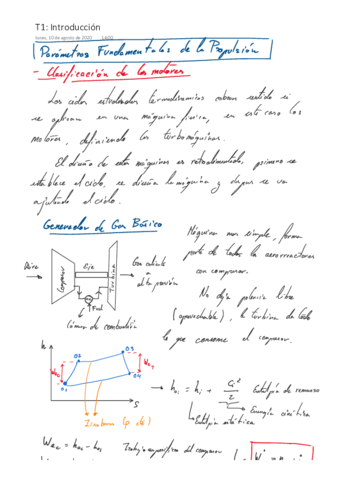 T1: Introducción
lunes, 10 de agosto de 2020
Parámetros Fundamentales de la Propulsión
- Clasificación de los motores
Los ciclos estudiados termodinámica cobran sentido si
se aplican en una máquina física, en este caso los
motores, definiendo las turbomáquinas.
El diseño de estas máquinas es retroalimentado, primero se
establece el ciclo, se diseña la máquina y después se va
ajustando el ciclo.
Generador de Gas Básico
Máquina más simple, forma
parte de todos los aerorreactores
con compresor.
Aire
Compresor
Eje
Turbina
Fuel
Gas caliente
a
alta presión
Cámara de combustión
No deja potencia libre
(aprovechable), la turbina da todo
lo que consume el compresor.
h
02
03
01
04
S
Isobaras (p cte)
Entalpía de remanso
Energía cinética
Entalpía estática
Trabajo específico del compresor